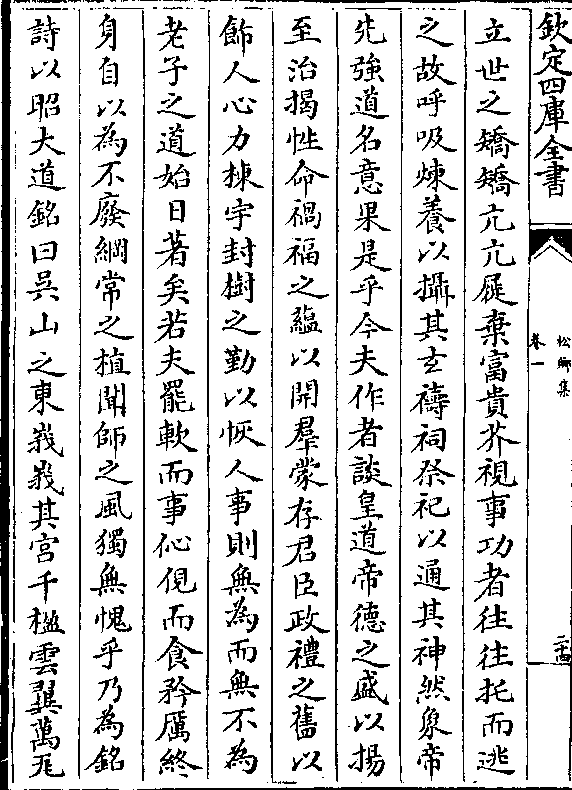 欽定四庫全書
松鄉集
卷一
二十四
立世之矯矯亢亢屣棄富貴芥視事功者往往托而逃
之故呼吸煉養以攝其玄禱祠祭祀以通其神然象帝
先強道名意果是乎今夫作者談皇道帝德之盛以揚
至治揭性命禍福之藴以開羣蒙存君臣政禮之舊以
飾人心力棟宇封樹之勤以恢人事則無為而無不為
老子之道始日著矣若夫罷軟而事伈俔而食矜厲終
身自以為不廢綱常之植聞師之風獨無愧乎乃為銘
詩以昭大道銘曰吳山之東峩峩其宫千楹雲巽萬瓦